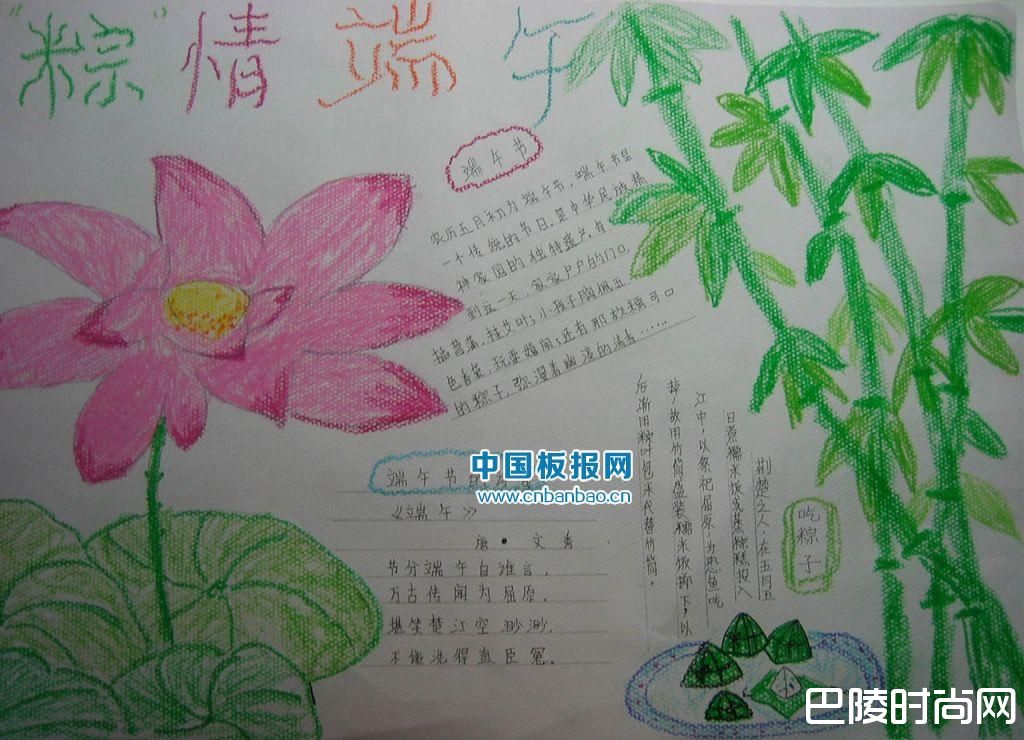 “粽”情端午
端午节
农历五月初为端午节，端午节是
一个传统的节日，是中华民族精
神家园的独特遗产，每
到这一天，家家户户的门口，
插菖蒲，挂艾叶；小孩子胸佩五
色香集，玩耍嬉闹；还有那软糯可口
的粽子，弥漫着幽淡的清香……
端午节的
《端午》
唐·文秀
节分端午自谁言，
万古传闻为屈原，
堪笑楚江空渺渺，
不能洗得直臣冤。
中国板报网
www.cnbanbao.cn
吃粽子
荆楚之人，在五月五
日煮糯米饭或蒸粽糕投入
江中，以祭祀屈原，为恐鱼吃
掉，故用竹筒盛装糯米饭掷下，以
后渐用粽叶包米代替竹筒。
巴陵时尚网